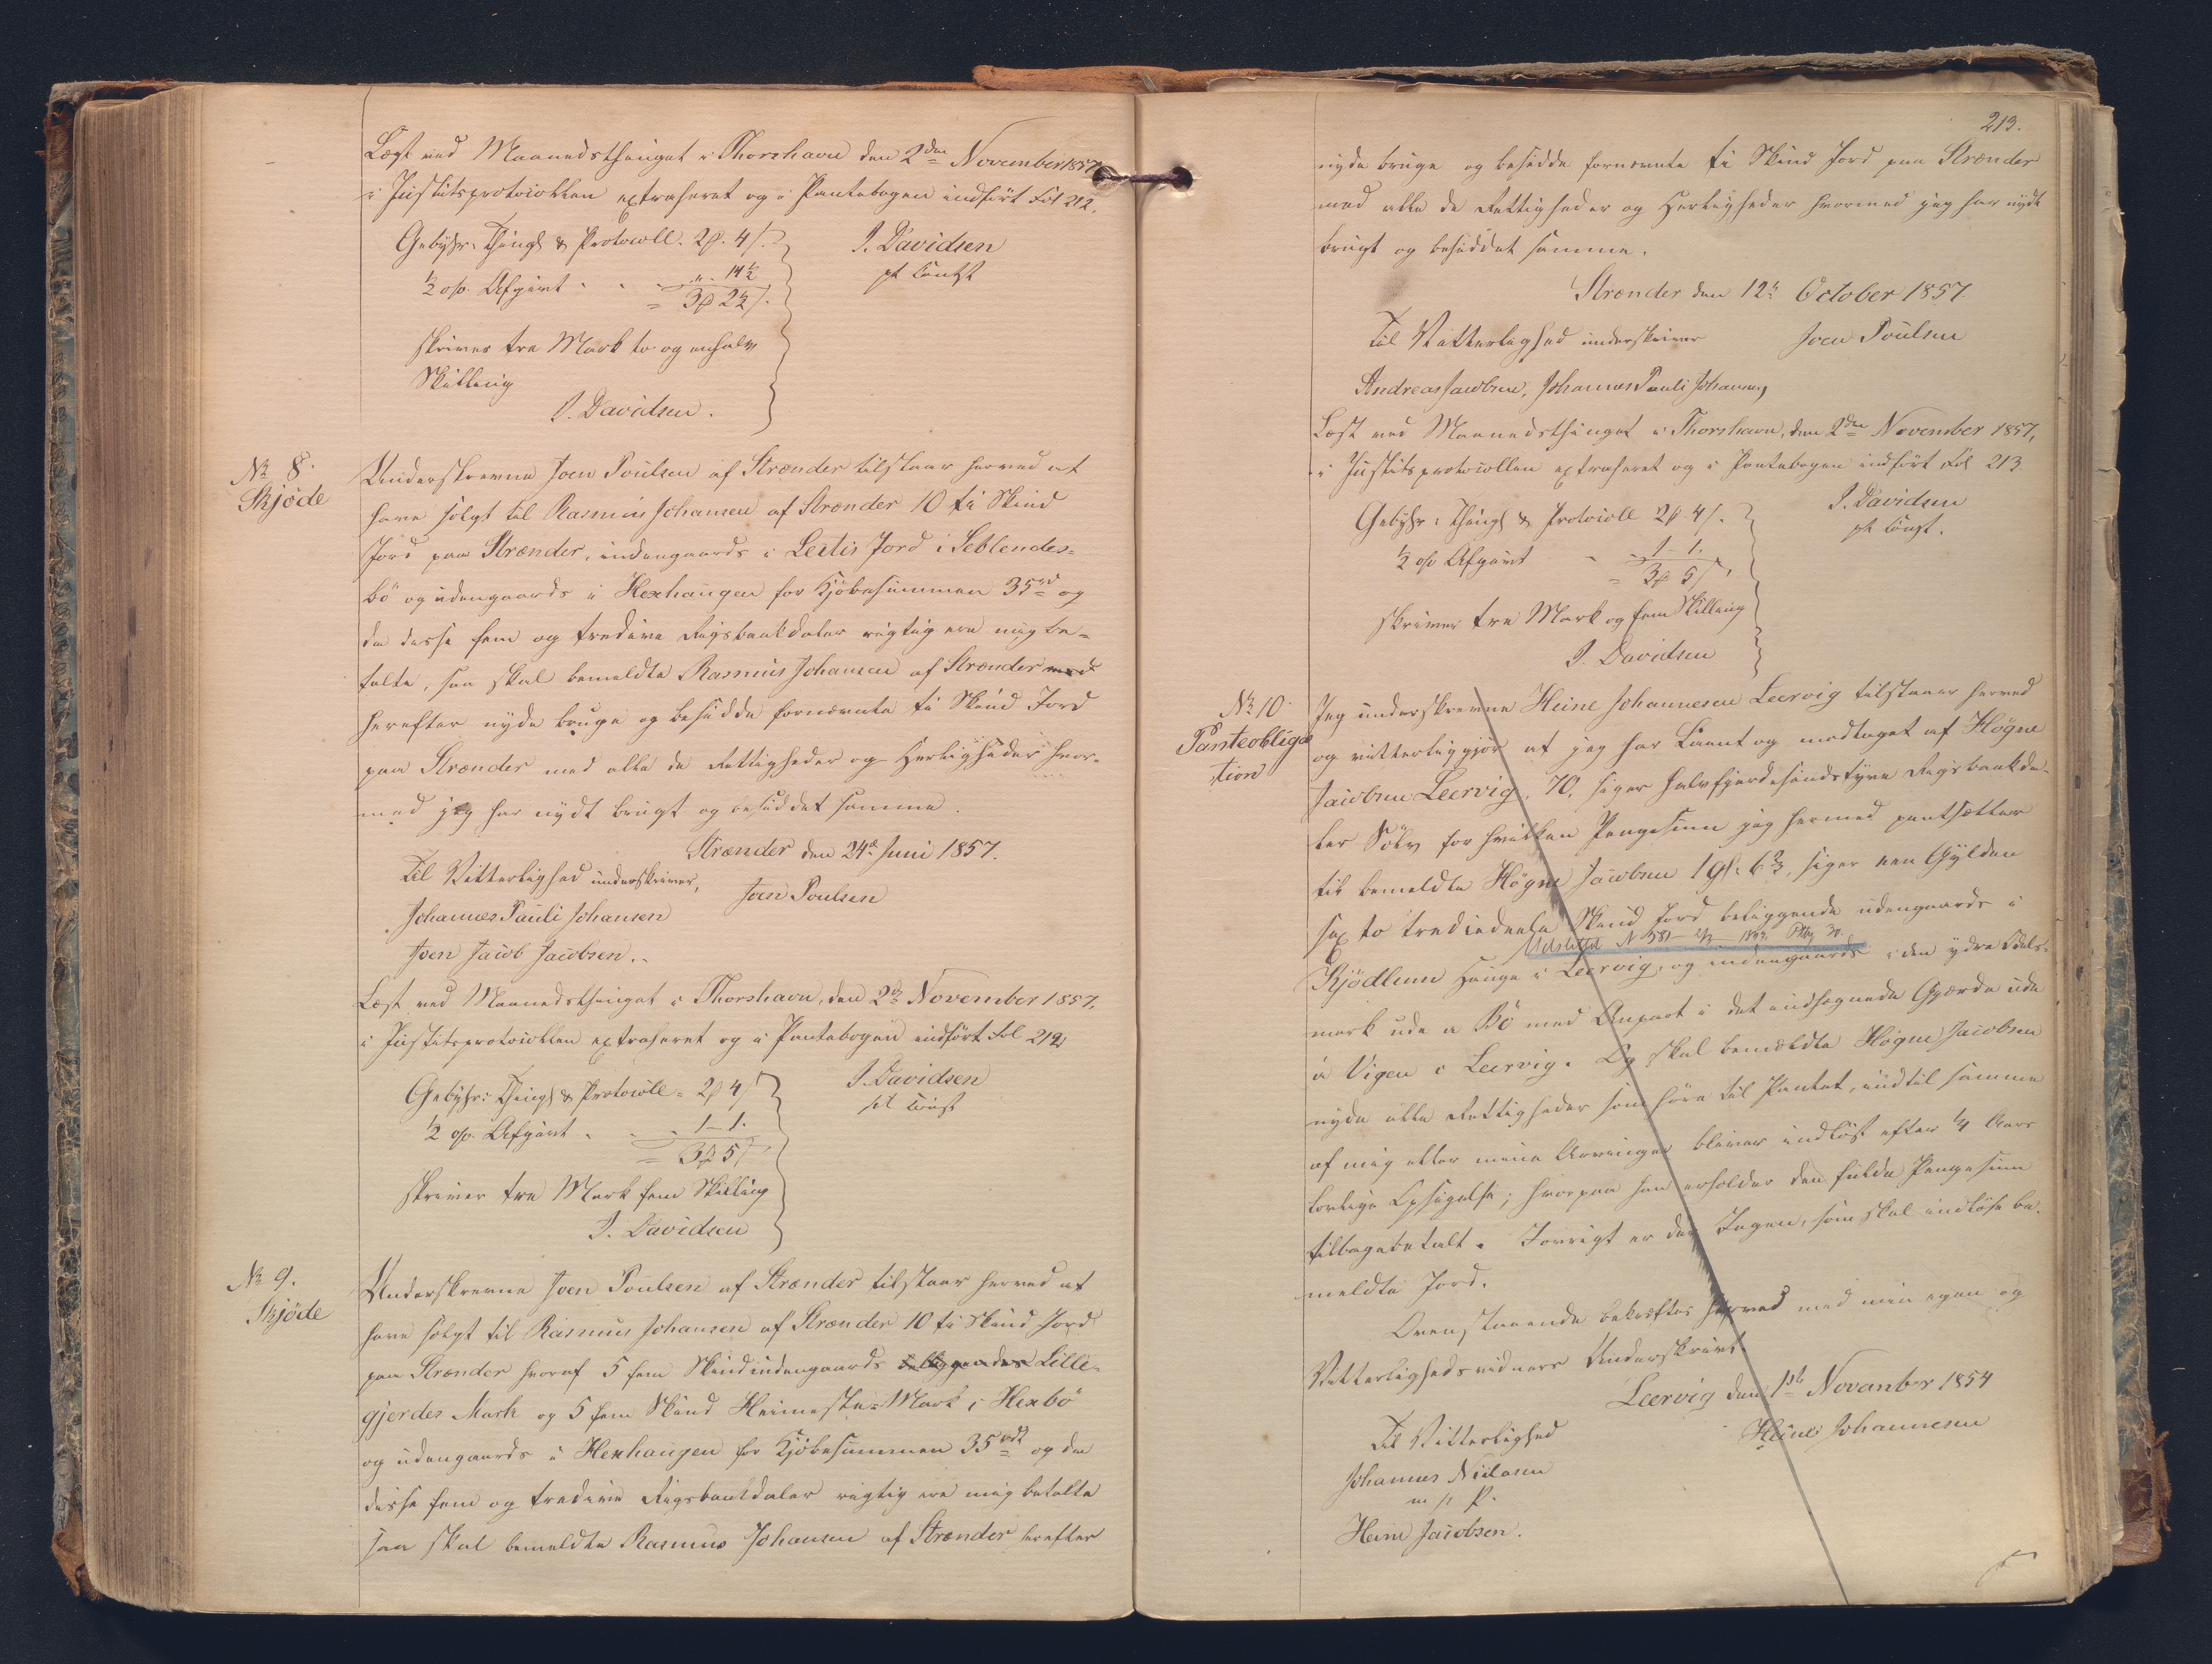 Læst ved Maanedsthinget i Thorshavn den 2den November 1857,
i Justitsprotocollen extraheret og i Pantebogen indført Fol 212.
Gebyhr: Thingl & Protocoll. 2 ₰. 4 /.
½ o/o. Afgivt - - „ - 14½
= 3 ₰ 2½ /.
J. Davidsen
pt const
skriver tre Mark to og en halv
Skilling
J. Davidsen.
No 8.
Skjöde
Underskrevne Joen Poulsen af Strænder tilstaar herved at
have solgt til Rasmus Johansen af Strænder 10 ti Skind
Jord paa Strænder, indengaards i Leitis Jord i Seblendes-
bö og udengaards i Hexhaugen for Kjöbesummen 35 rd og
da disse fem og tredive Rigsbankdaler rigtig ere mig be-
talte, saa skal bemeldte Rasmus Johansen af Strænder
herefter nyde bruge og besidde fornævnte ti Skind Jord
paa Strænder med alle de Rettigheder og Herligheder hvor-
med jeg har nydt brugt og besiddet samme.
Strænder den 24de Juni 1857.
Til Vitterlighed underskriver,
Joen Poulsen
Johannes Pauli Johansen
Joen Jacob Jacobsen.
Læst ved Maanedsthinget i Thorshavn, den 2den November 1857,
i Justitsprotocollen extraheret og i Pantebogen indført Fol 212
Gebyhr: Thingl & Protocoll = 2 ₰ 4 /
½ o/o. Afgivt - - 1 - 1.
= 3 ₰ 5 /
J. Davidsen
pt const
skriver tre Mark fem Skilling
J. Davidsen
No 9.
Skjöde
Underskrevne Joen Poulsen af Strænder tilstaar herved at
have solgt til Rasmus Johansen af Strænder 10 ti Skind Jord
paa Strænder hvoraf 5 fem Skind indengaards beliggendes Lille-
gjerdes Mark og 5 fem Skind Heimeste-Mark i Hexbö
og udengaards i Hexhaugen for Kjöbesummen 35 rd og da
disse fem og tredive Rigsbankdaler rigtig ere mig betalte
saa skal bemeldte Rasmus Johansen af Strænder herefter
213.
nyde bruge og besidde fornævnte ti Skind Jord paa Strænder
med alle de Rettigheder og Herligheder hvormed jeg har nydt
brugt og besiddet samme.
Strænder den 12te October 1857
Til Vitterlighed underskriver
Joen Poulsen
Andreas Jacobsen, Johannes Pauli Johansen,
Læst ved Maanedsthinget i Thorshavn, den 2den November 1857,
i Justitsprotocollen extraheret og i Pantebogen indført Fol 213.
Gebyhr: Thingl & Protocoll 2 ₰ 4 /.
½ o/o Afgivt - - 1 - 1.
= 3 ₰ 5 /.
J. Davidsen
pt const.
skriver tre Mark og fem Skilling
J. Davidsen
No 10.
Panteobliga
tion
Jeg underskrevne Heine Johannesen Leervig tilstaaer herved
og vitterliggjør at jeg har laant og modtaget af Högne
Jacobsen Leervig, 70, siger halvfjerdesindstyve Rigsbankda-
ler Sölv for hvilken Pengesum jeg hermed pantsætter
til bemeldte Högne Jacobsen 1 Gl. 6⅔, siger een Gylden
sex to trediedeele Skind Jord beliggende udengaards i
Udslettet N 581 -
Kjödlum Hauge i Leervig, og indengaards i den ydre
mark ude a Bö med Anpart i det indhegnede Gjærde ude
a Vigen i Leervig. Og skal bemeldte Högne Jacobsen
nyde alle Rettigheder som höre til Pantet, indtil samme
af mig eller mine Arvinger bliver indlöst efter ¼ Aars
lovlige Opsigelse; hvorpaa han erholder den fulde Pengesum
tilbagebetalt. Jovrigt er der Ingen, som skal indlöse be-
meldte Jord.
Ovenstaaende bekræftes herved med min egen og
Vitterlighedsvidners Underskrivt.
Leervig den 1ste November 1854
Til Vitterlighed
Heine Johannesen
Johannes Nielsen
m p P.
Heine Jacobsen.